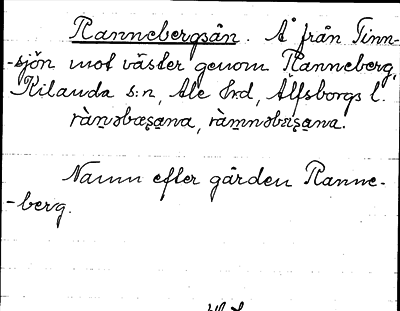 Rannebergsån. Å från Tinn-
-sjön mot väster genom Ranneberg,
Kilanda s:n, Ale Hrd, Älfsborgs l.
ràn̠əbæʂa̠na, ràm̠nəbæʂa̠na.
Namn efter gården Ranne-
-berg.